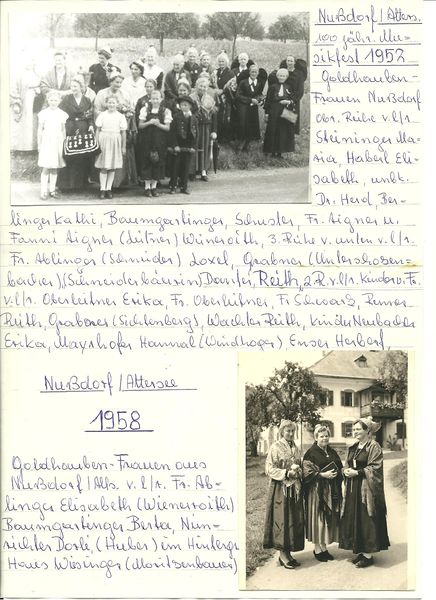 Nußdorf/Atters.
100 jähr. Mu-
sikfest 1952
Goldhauben-
Frauen Nußdorf
obr. Reihe v.l/r.
Steininger Ma-
ria, Haberl Eli-
sabeth, unbk.
Dr. Herd, Ber-
linger Kathi, Baumgartinger, Schuster, Fr. Aigner u.
Fanni Aigner (Leitner) 3. Reihe v. unten v.l/r.
Fr. Ablinger (Schneider) Grabner
Reith, 2 R. v.l/r. Kinder v. Fr.
v.l/r. Oberleitner Erika, Fr. Oberleitner, Fr.
Reith, Grabner (Sichlenberg), Wachter Reith, Kinder Neubacher
Erika, Mayrhofer Hannal (Windhager) Enser Herbert,
Nußdorf/Attersee
1958
Goldhauben-Frauen aus
Nußdorf/Atts. v.l/r. Fr. Ab-
linger Elisabeth (Wienerroith)
Baumgartinger Berta, Nun-
richter Dorli, (Huber) im Hintergr.
Haus Wiesinger (Moritzenbauer)